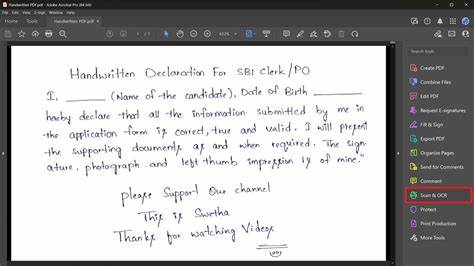 Handwritten PDF.pdf - Adobe Acrobat Pro (64-bit)
Home Tools
Handwritten PDF.pdf
Search tools
Handwritten Declaration For SBI Clerk/PO
I, ______ (Name of the candidate), Date of Birth ______
heeby declare that all the information submitted by me in
the application form is correct, true and valid. I will present
the supporting documents as and when required. The sign
ature, photograph and left thumb impression is of mine."
Please Support Our channel
This is Swetha
Thanks for watching Videos
Create PDF
Combine Files
Edit PDF
Export PDF
Request E-signatures
Fill & Sign
Organize Pages
Send for Comments
Comment
Scan & OCR
Protect
Print Production
More Tools